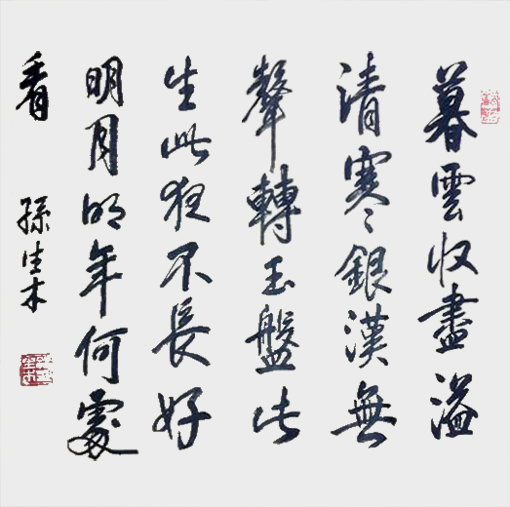 暮雲收盡溢
清寒銀漢無
聲轉玉盤此
生此夜不長好
明月明年何處
看 孫生木